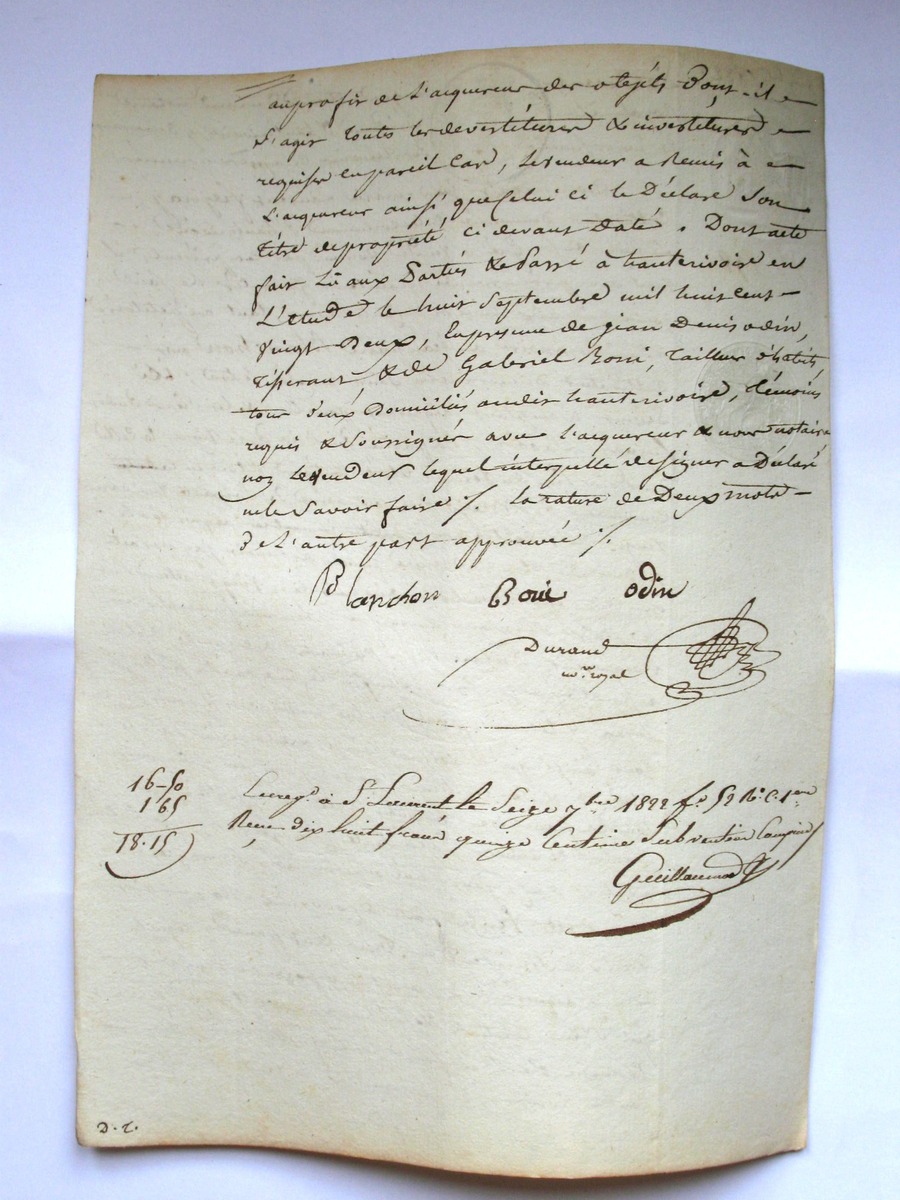 au profit de L'acquereur des objets Dont-il
S'agit touts les devestitures & investitures
requises en pareil Cas, Le vendeur a Remis à
L'acquereur ainsi que Celui ci le Déclare Son
titre de propriété, Ci devant Daté. Dont acte
fait Lû aux Parties & Passé à hauterivoire en
L'étude le huit Septembre mil huit cent
Vingt Deux, En présence de jean Denis odin,
tisserant & de Gabriel Boni, tailleur d'habits
tous deux Domiciliés audit hauterivoire, témoins
requis & Soussignés avec L'acquereur & nous notaire
non Le vendeur lequel interpellé de signer a Déclaré
ne le Savoir faire ./. La rature de Deux mots
De L'autre part approuvée ./.
Blanchon Boni odin
Durand
no.re royal
16-50
1 65
18.15
Enreg.é à S.t Laurent le Seize 7.bre 1822 f.o 52 R.o C. 1.ere
Reçu dix huit francs quinze Centimes Subvention Comprise
Guillaumod
D. t.